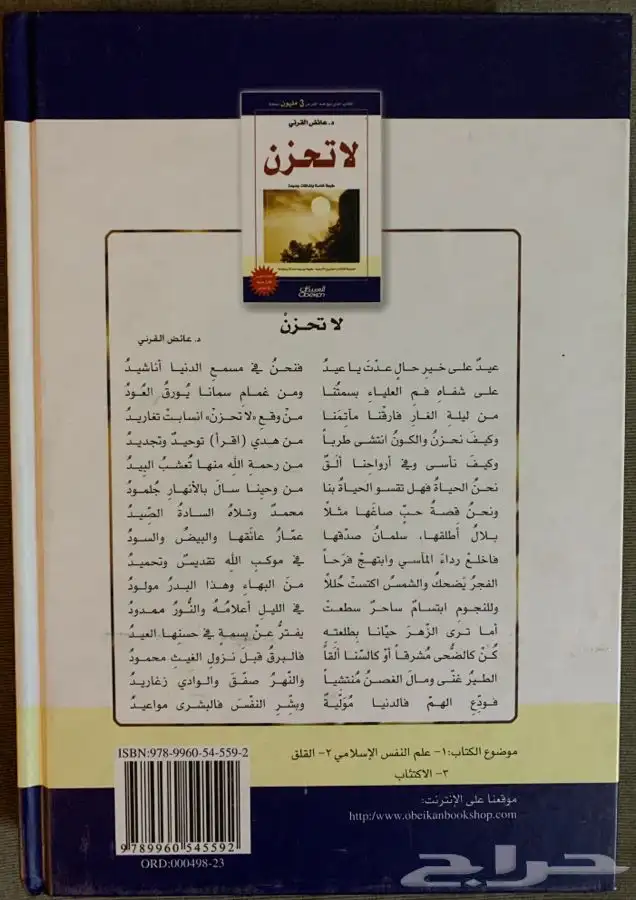 الكتاب الذي بيع منه أكثر من 3 مليون نسخة
د. عائض القرني
لا تحزن
طبعة خاصة وإضافات جديدة
العبيكان
Obeikan
لا تحزنْ
د. عائض القرني
عيدٌ على خيرِ حالٍ عدْتَ يا عيدُ فنحنُ في مسمعِ الدنيا أناشيدُ
على شفاهِ فمِ العلياءِ بسمتُنا ومن غمامِ سمانا يُورقُ العُودُ
من ليلةِ الغارِ فارقْنا مآتِمَنا منْ وقعِ «لا تحزنْ» انسابتْ تغاريدُ
وكيفَ نحزنُ والكونُ انتشى طرباً من هدي (اقرأ) توحيدٌ وتجديدُ
وكيفَ نأسى وفي أرواحِنا ألقٌ من رحمةِ اللهِ منها تُعشبُ البِيدُ
نحنُ الحياةُ فهل تقسو الحياةُ بنا من وحينا سالَ بالأنهارِ جُلمودُ
ونحنُ قصةُ حبٍّ صاغَها مثلًا محمدٌ وتلاهُ السادةُ الصِّيدُ
بلالُ أطلقها، سلمانُ صدّقها عمّارُ عانَقها والبيضُ والسودُ
فاخلعْ رداءَ المآسي وابتهجْ فرَحاً في موكبِ اللهِ تقديسٌ وتحميدُ
الفجرُ يَضحكُ والشمسُ اكتستْ حُللًا منَ البهاءِ وهذا البدرُ مولودُ
وللنجومِ ابتسامٌ ساحرٌ سطعتْ في الليلِ أعلامُهُ والنُّورُ ممدودُ
أما ترى الزهرَ حيّانا بطلعتِه يفترُّ عنْ بسمةٍ في حسنِها العيدُ
كُنْ كالضُّحى مُشرقاً أوْ كالسّنا ألقاً فالبرقُ قبلَ نزولِ الغيثِ محمودُ
الطيرُ غنّى ومالَ الغصنُ مُنتشياً والنّهرُ صفّقَ والوادي زغاريدُ
فودّعِ الهمَّ فالدنيا مُوَلّيةٌ وبشّرِ النفْسَ فالبشرى مواعيدُ
موضوع الكتاب: ١- علم النفس الإسلامي ٢- القلق
٣- الاكتئاب
موقعنا على الإنترنت:
http://www.obeikanbookshop.com
ISBN:978-9960-54-559-2
9789960545592
ORD:000498-23
حراج